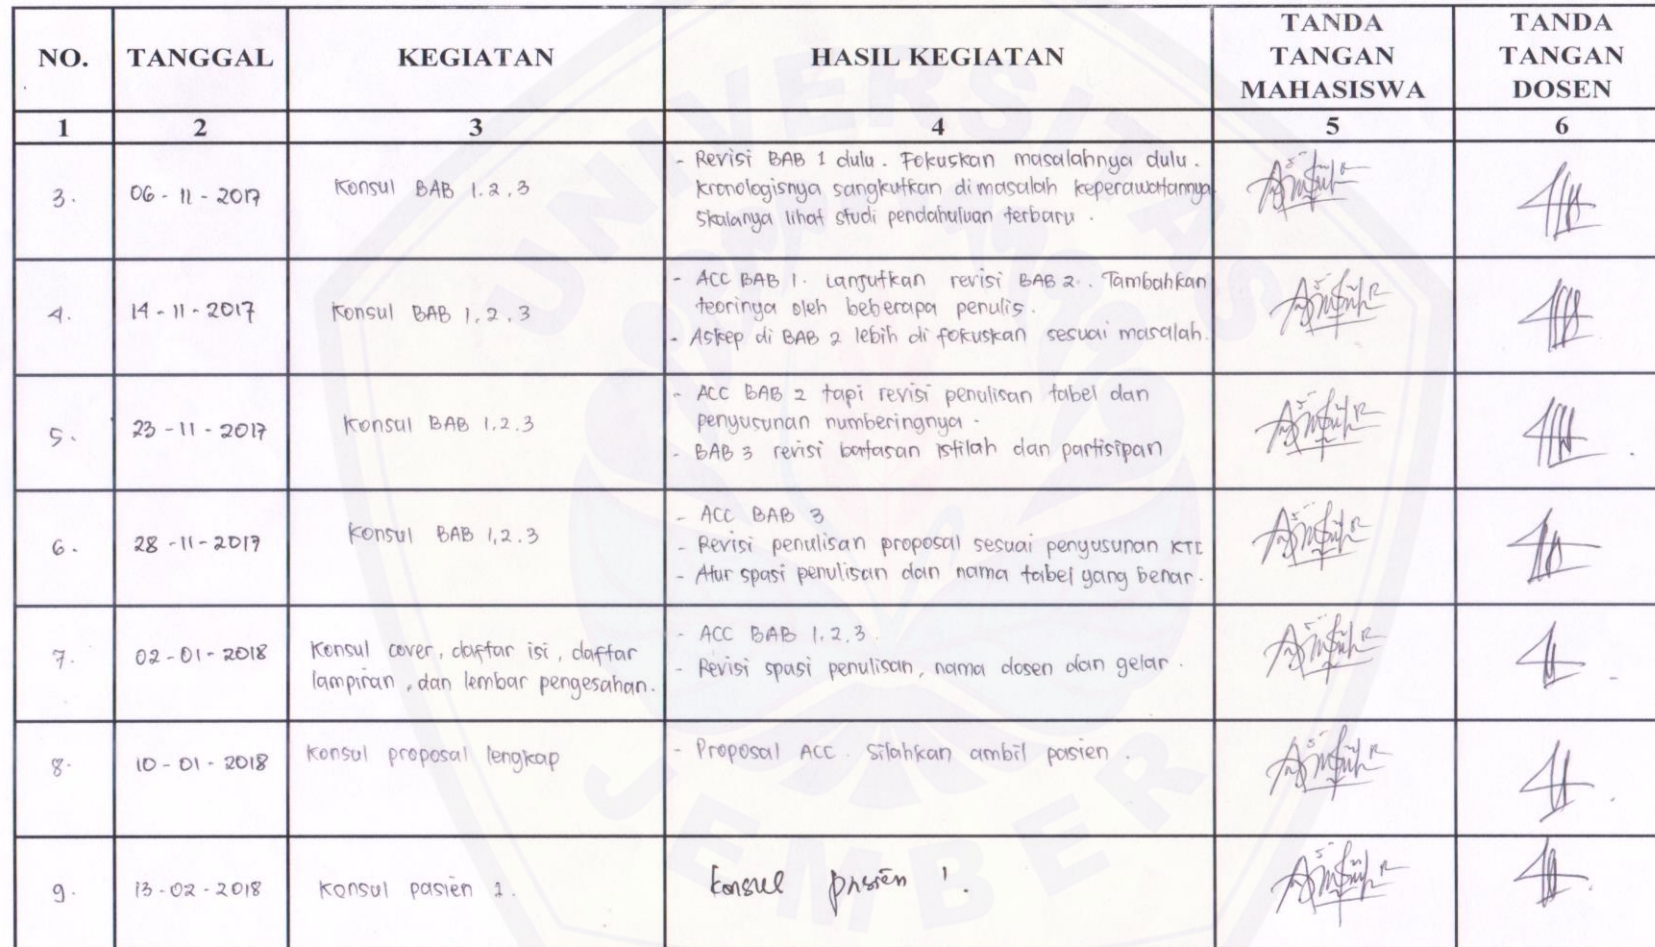 NO. TANGGAL KEGIATAN HASIL KEGIATAN TANDA TANGAN MAHASISWA TANDA TANGAN DOSEN
1 2 3 4 5 6
3. 06 - 11 - 2017 Konsul BAB 1.2.3
- Revisi BAB 1 dulu. Fokuskan masalahnya dulu.
kronologisnya sangkutkan di masalah keperawatannya
skalanya lihat studi pendahuluan terbaru.
4. 14 - 11 - 2017 Konsul BAB 1.2.3
- ACC BAB 1. Lanjutkan revisi BAB 2.. Tambahkan
teorinya oleh beberapa penulis.
- Askep di BAB 2 lebih di fokuskan sesuai masalah.
5. 23 - 11 - 2017 Konsul BAB 1,2.3
- ACC BAB 2 tapi revisi penulisan tabel dan
penyusunan numberingnya.
- BAB 3 revisi batasan istilah dan partisipan
6. 28 - 11 - 2017 Konsul BAB 1,2.3
- ACC BAB 3
- Revisi penulisan proposal sesuai penyusunan KTI
- Atur spasi penulisan dan nama tabel yang benar.
7. 02 - 01 - 2018 Konsul cover, daftar isi, daftar
lampiran, dan lembar pengesahan.
- ACC BAB 1.2.3.
- Revisi spasi penulisan, nama dosen dan gelar.
8. 10 - 01 - 2018 Konsul proposal lengkap
- Proposal ACC. Silahkan ambil pasien.
9. 13 - 02 - 2018 Konsul pasien 1.
Konsul pasien 1.
UNIVERSITAS
JEMBER